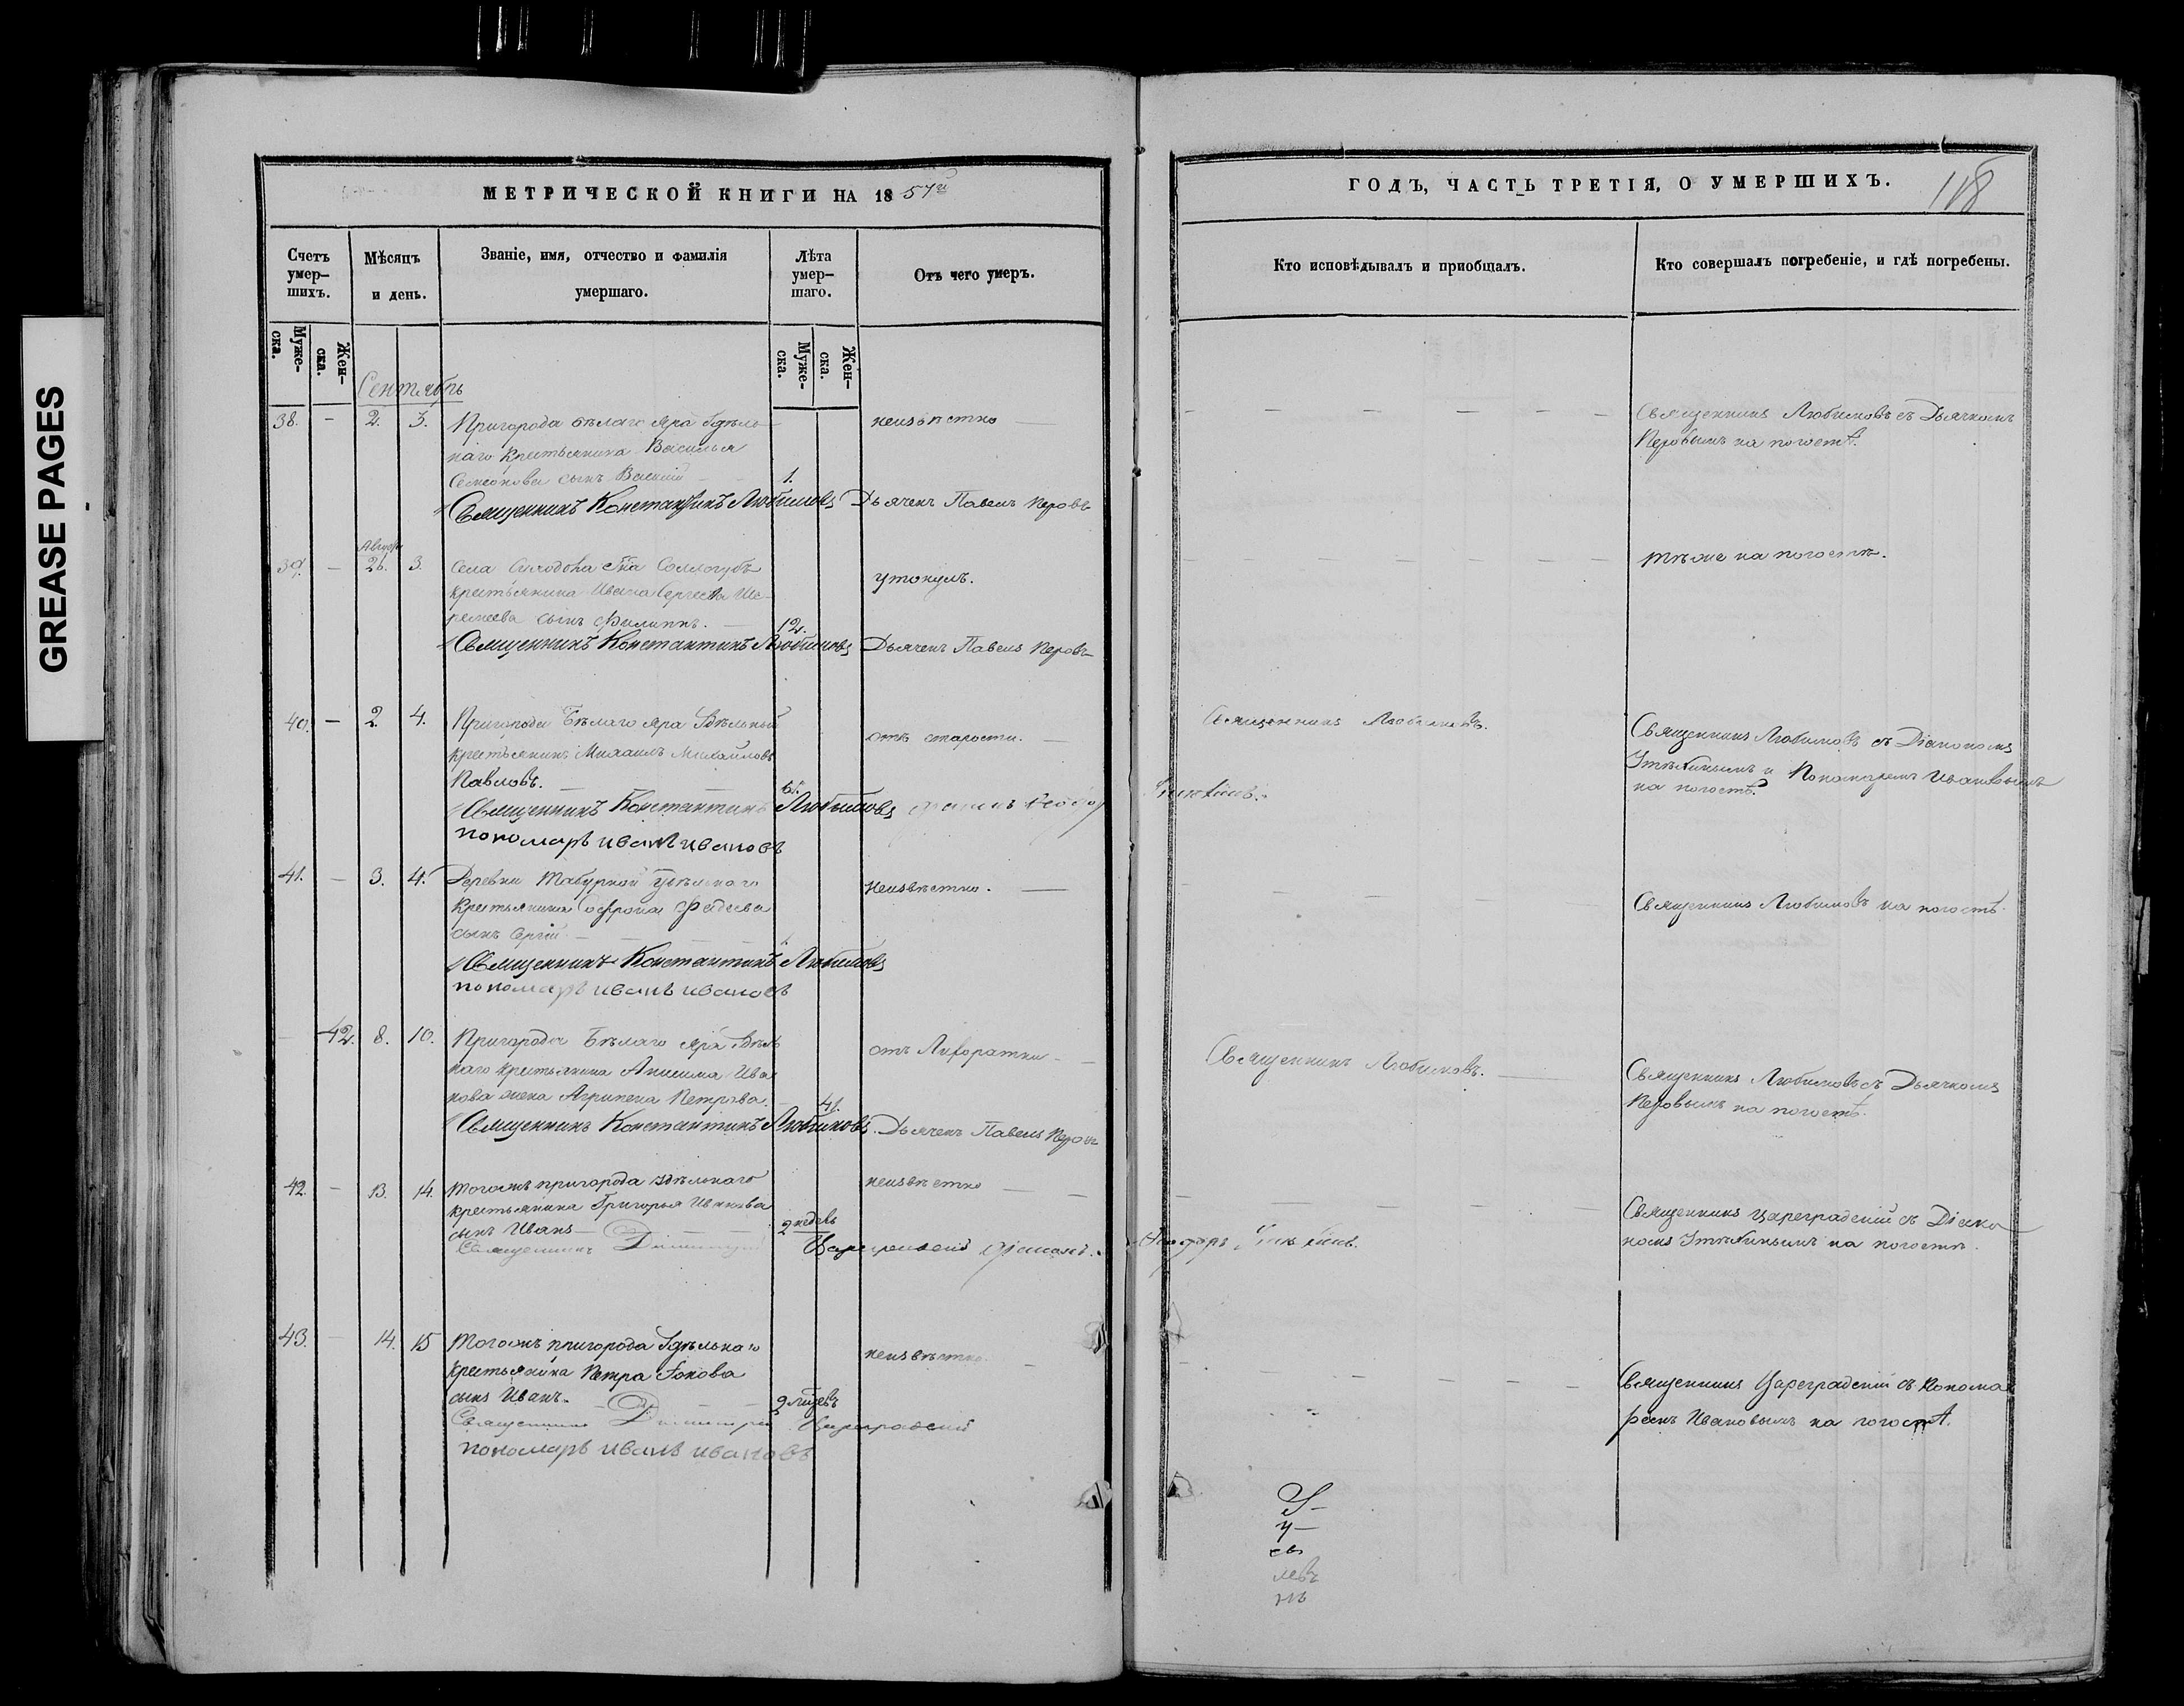 GREASE PAGES
МЕТРИЧЕСКОЙ КНИГИ НА 1857й
Счетъ умер-шихъ.
Мѣсяцъ и день.
Званіе, имя, отчество и фамилія умершаго.
Лѣта умер-шаго.
Отъ чего умеръ.
Муже-ска.
Жен-ска.
Муже-ска.
Жен-ска.
Сентябрь
38. - 2. 3. Пригорода Бѣлаго Яра Удѣль- неизвѣстно
наго крестьянина Василья
Семенова сынъ Василій 1.
Священникъ Константинъ Любимовъ Дьячекъ Павелъ Перовъ
39. - 26. 3. Села
крестьянина Ивана Сергеева Ше- утонулъ.
ремеева сынъ Филиппъ. 12.
Священникъ Константинъ Любимовъ Дьячекъ Павелъ Перовъ
40. - 2. 4. Пригорода Бѣлаго Яра Удѣльный
крестьянинъ Михаилъ Михайловъ отъ старости.
Павловъ.
Священникъ Константинъ Любимовъ
пономарь Иванъ Ивановъ
41. - 3. 4. Деревни удѣльнаго неизвѣстно.
крестьянина Софрона Фадеева
сынъ Сергій
Священникъ Константинъ Любимовъ
пономарь Иванъ Ивановъ
42. 8. 10. Пригорода Бѣлаго Яра Удѣль отъ Лихоратки
наго крестьянина Анисима Ива
нова жена Агрипена Петрова. 41.
Священникъ Константинъ Любимовъ. Дьячекъ Павелъ Перовъ
42. - 13. 14. Тогожъ пригорода удѣльнаго неизвѣстно
крестьянина Григорья Иванова
сынъ Иванъ 2 недель
Священникъ Димитрій Цареградскій Діаконъ
43. 14. 15 Тогожъ пригорода Удѣльнаго неизвѣстно
крестьянина Петра
сынъ Иванъ.
Священникъ Димитрій Цареградскій
пономарь Иванъ Ивановъ
ГОДЪ, ЧАСТЬ ТРЕТІЯ, О УМЕРШИХЪ.
118
Кто исповѣдывалъ и пріобщалъ.
Кто совершалъ погребеніе, и гдѣ погребены.
Священникъ Любимовъ съ Дьячкомъ
Перовымъ на погостѣ.
тѣже на погостѣ.
Священникъ Любимовъ.
Священникъ Любимовъ съ Діакономъ
и Пономаремъ Ивановымъ
на погостѣ.
Священникъ Любимовъ на погостѣ.
Священникъ Любимовъ.
Священникъ Любимовъ съ Дьячкомъ
Перовымъ на погостѣ.
Священникъ Цареградскій съ Діако
номъ на погостѣ.
Священникъ Цареградскій съ Понома
ремъ Ивановымъ на погостѣ.